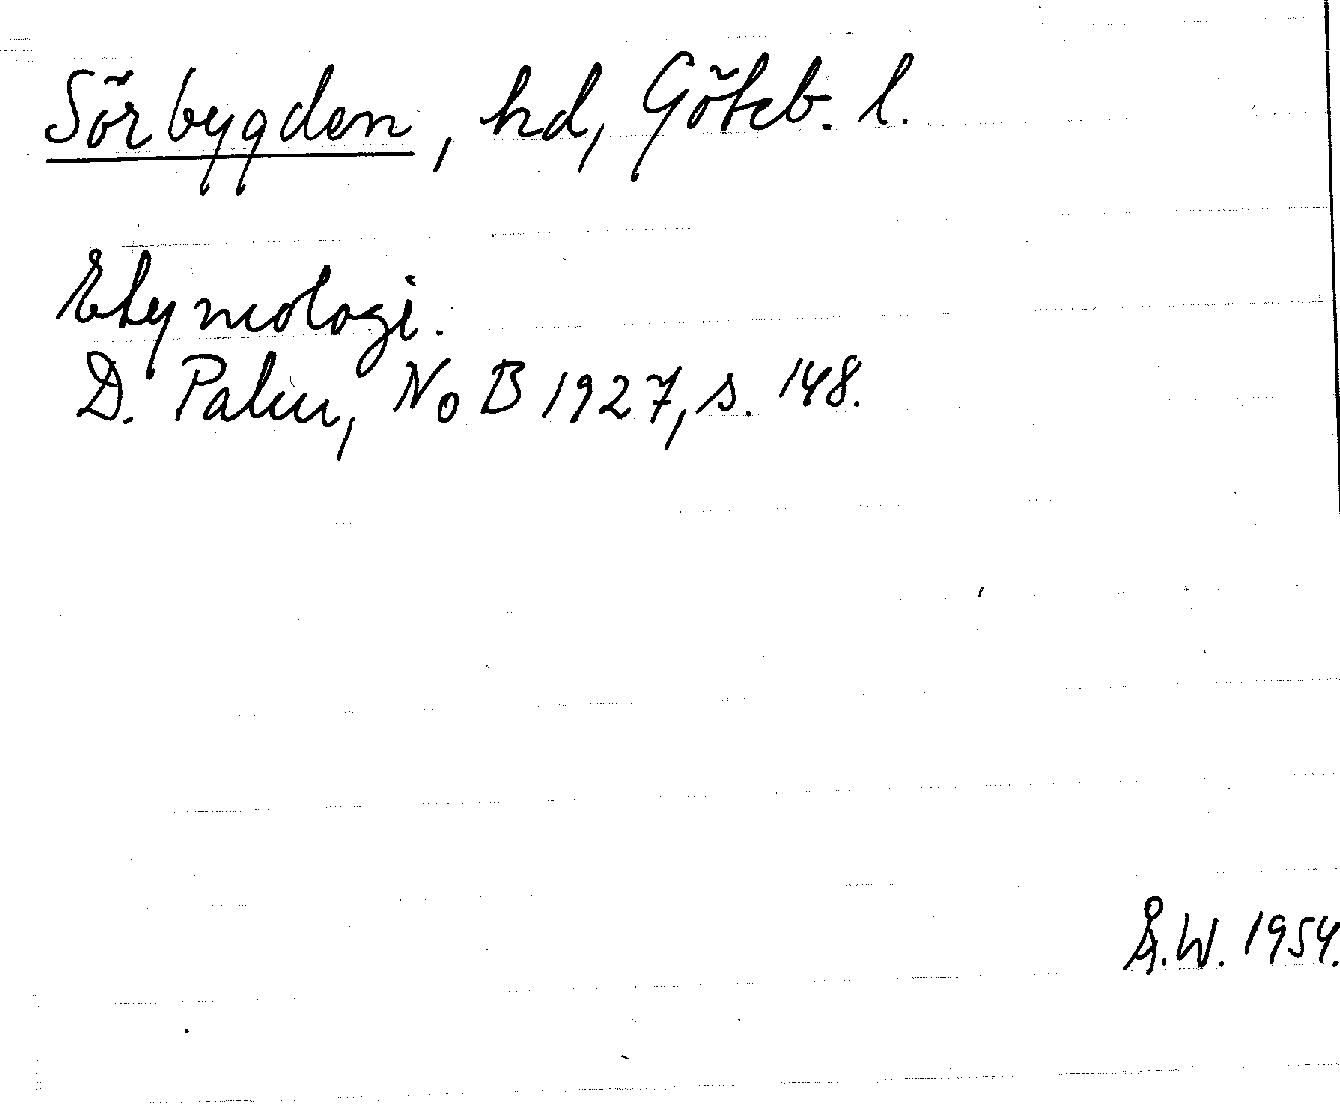 Sörbygden, hd, Göteb. l.
Etymologi.
D. Palm, NoB 1927, s. 148.
Å.W. 1954.